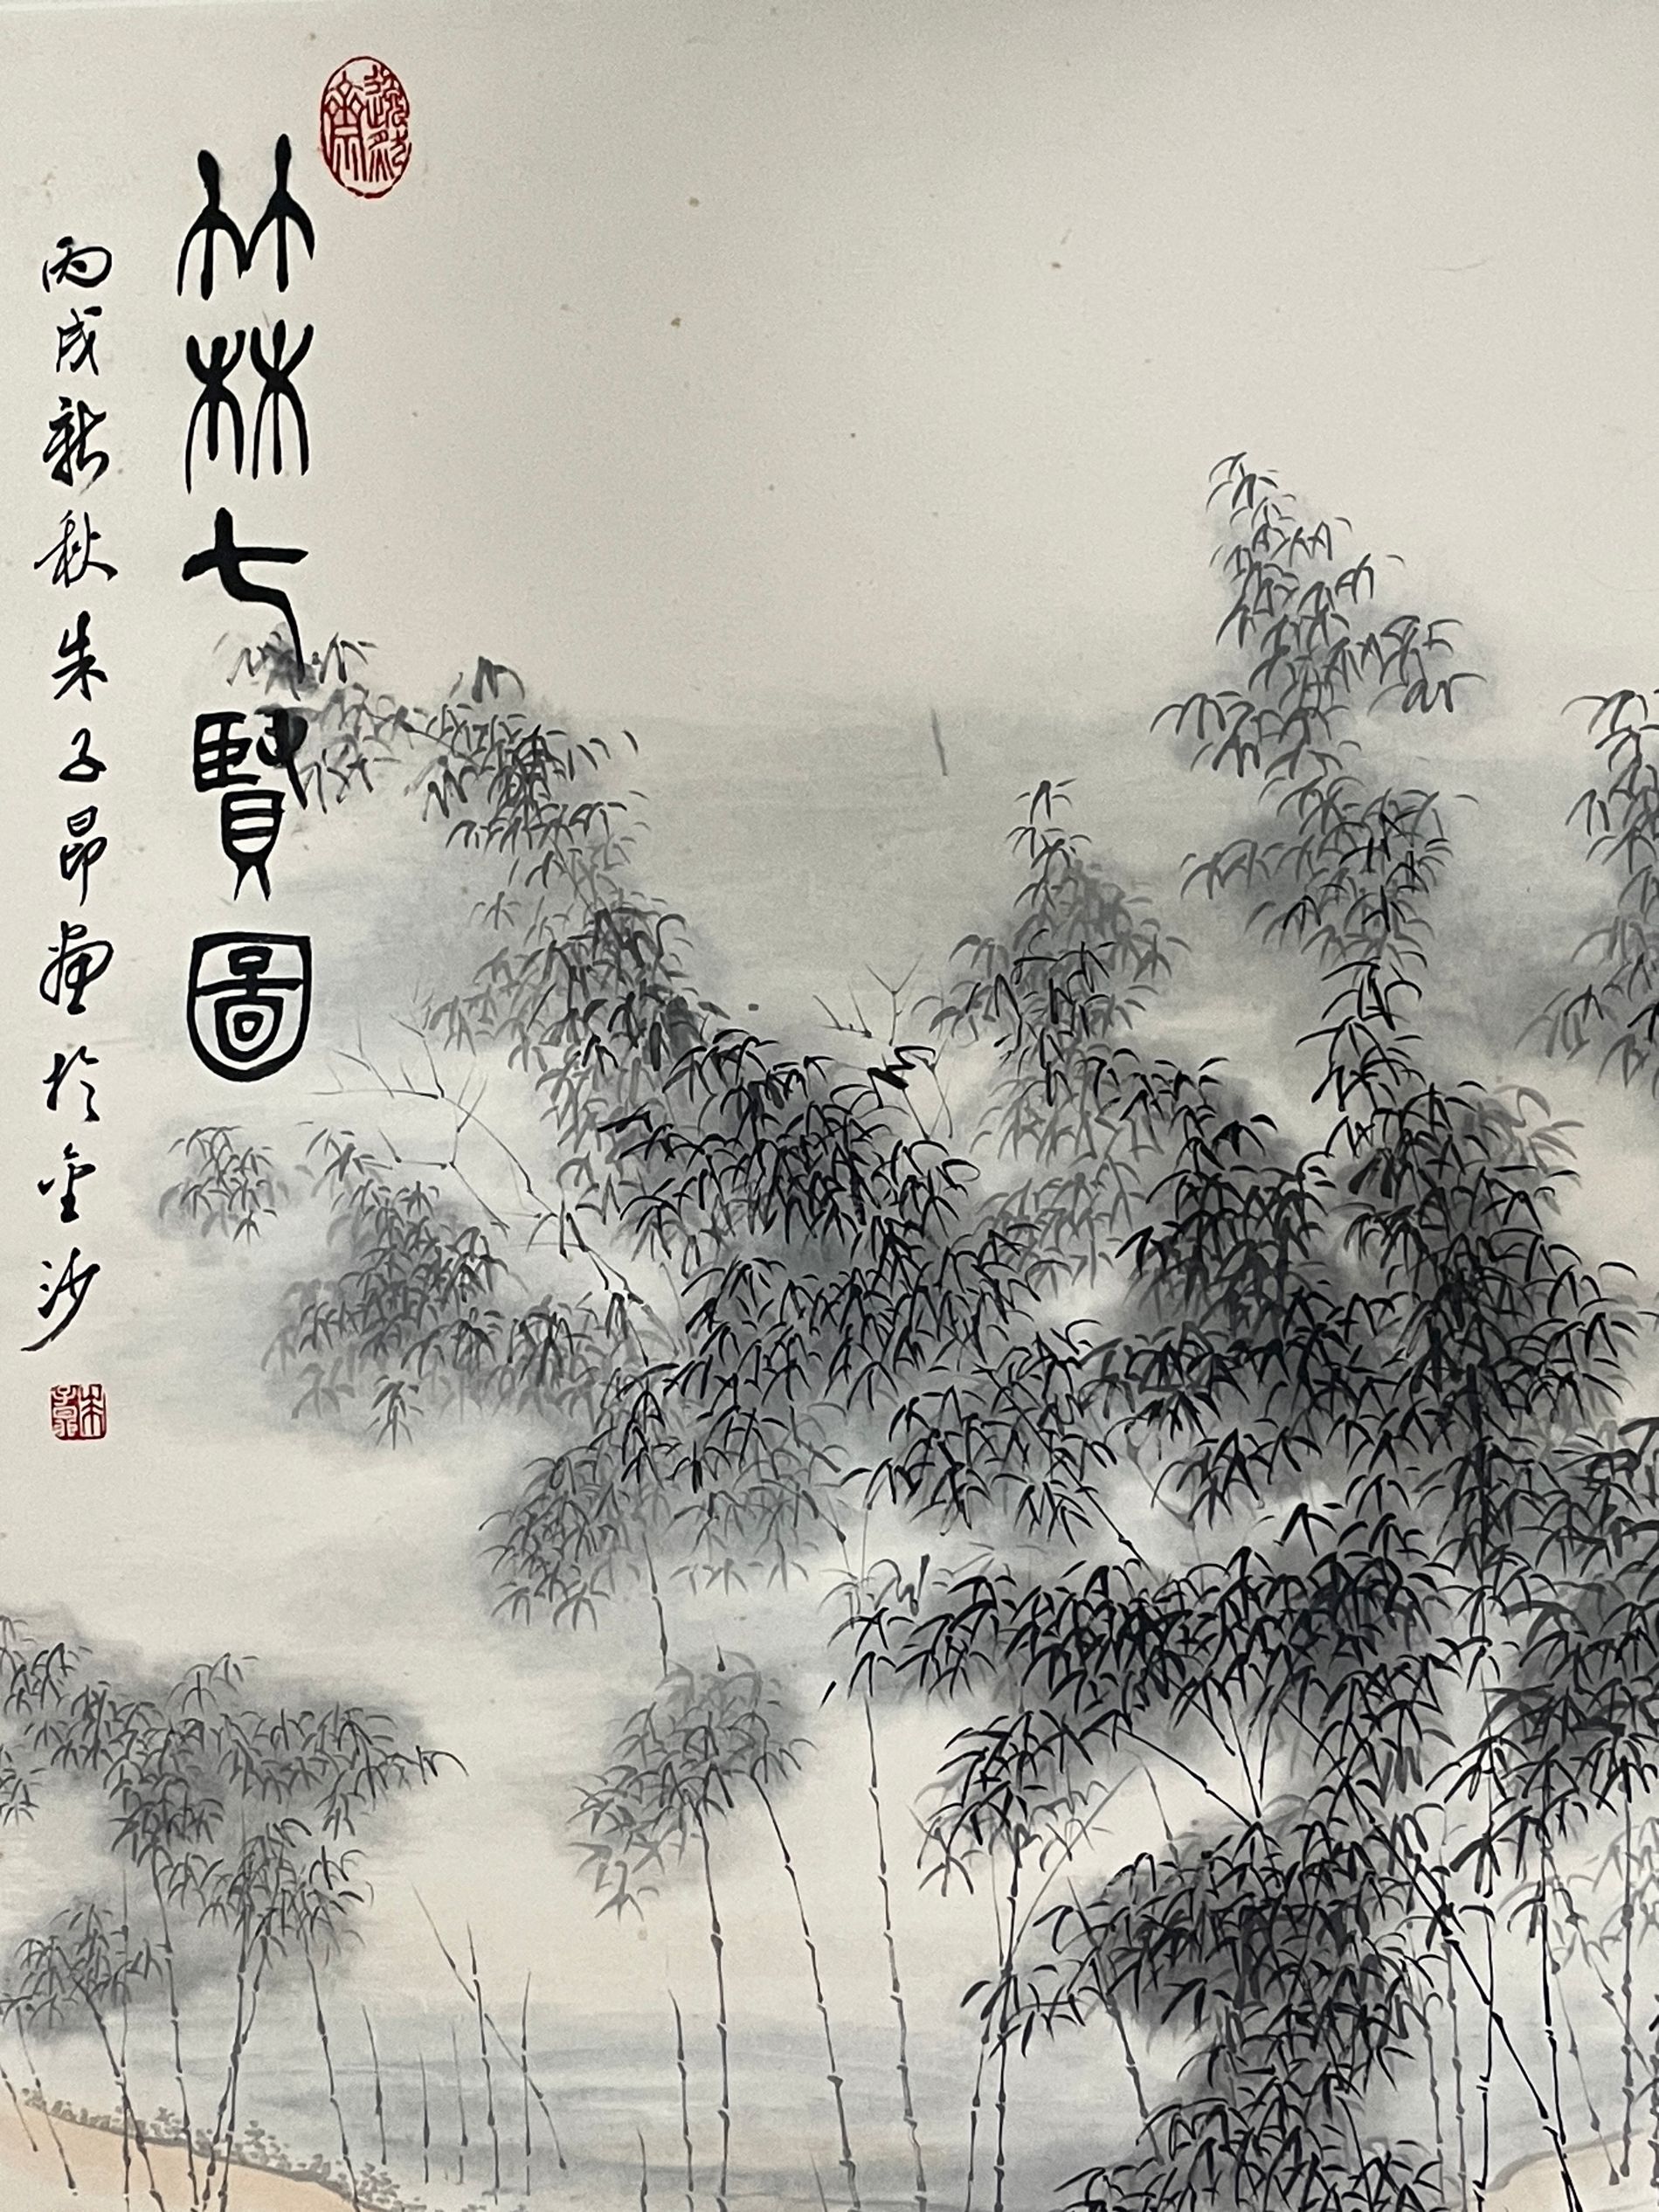 竹林七賢圖
丙戌新秋朱子昂畫於金沙